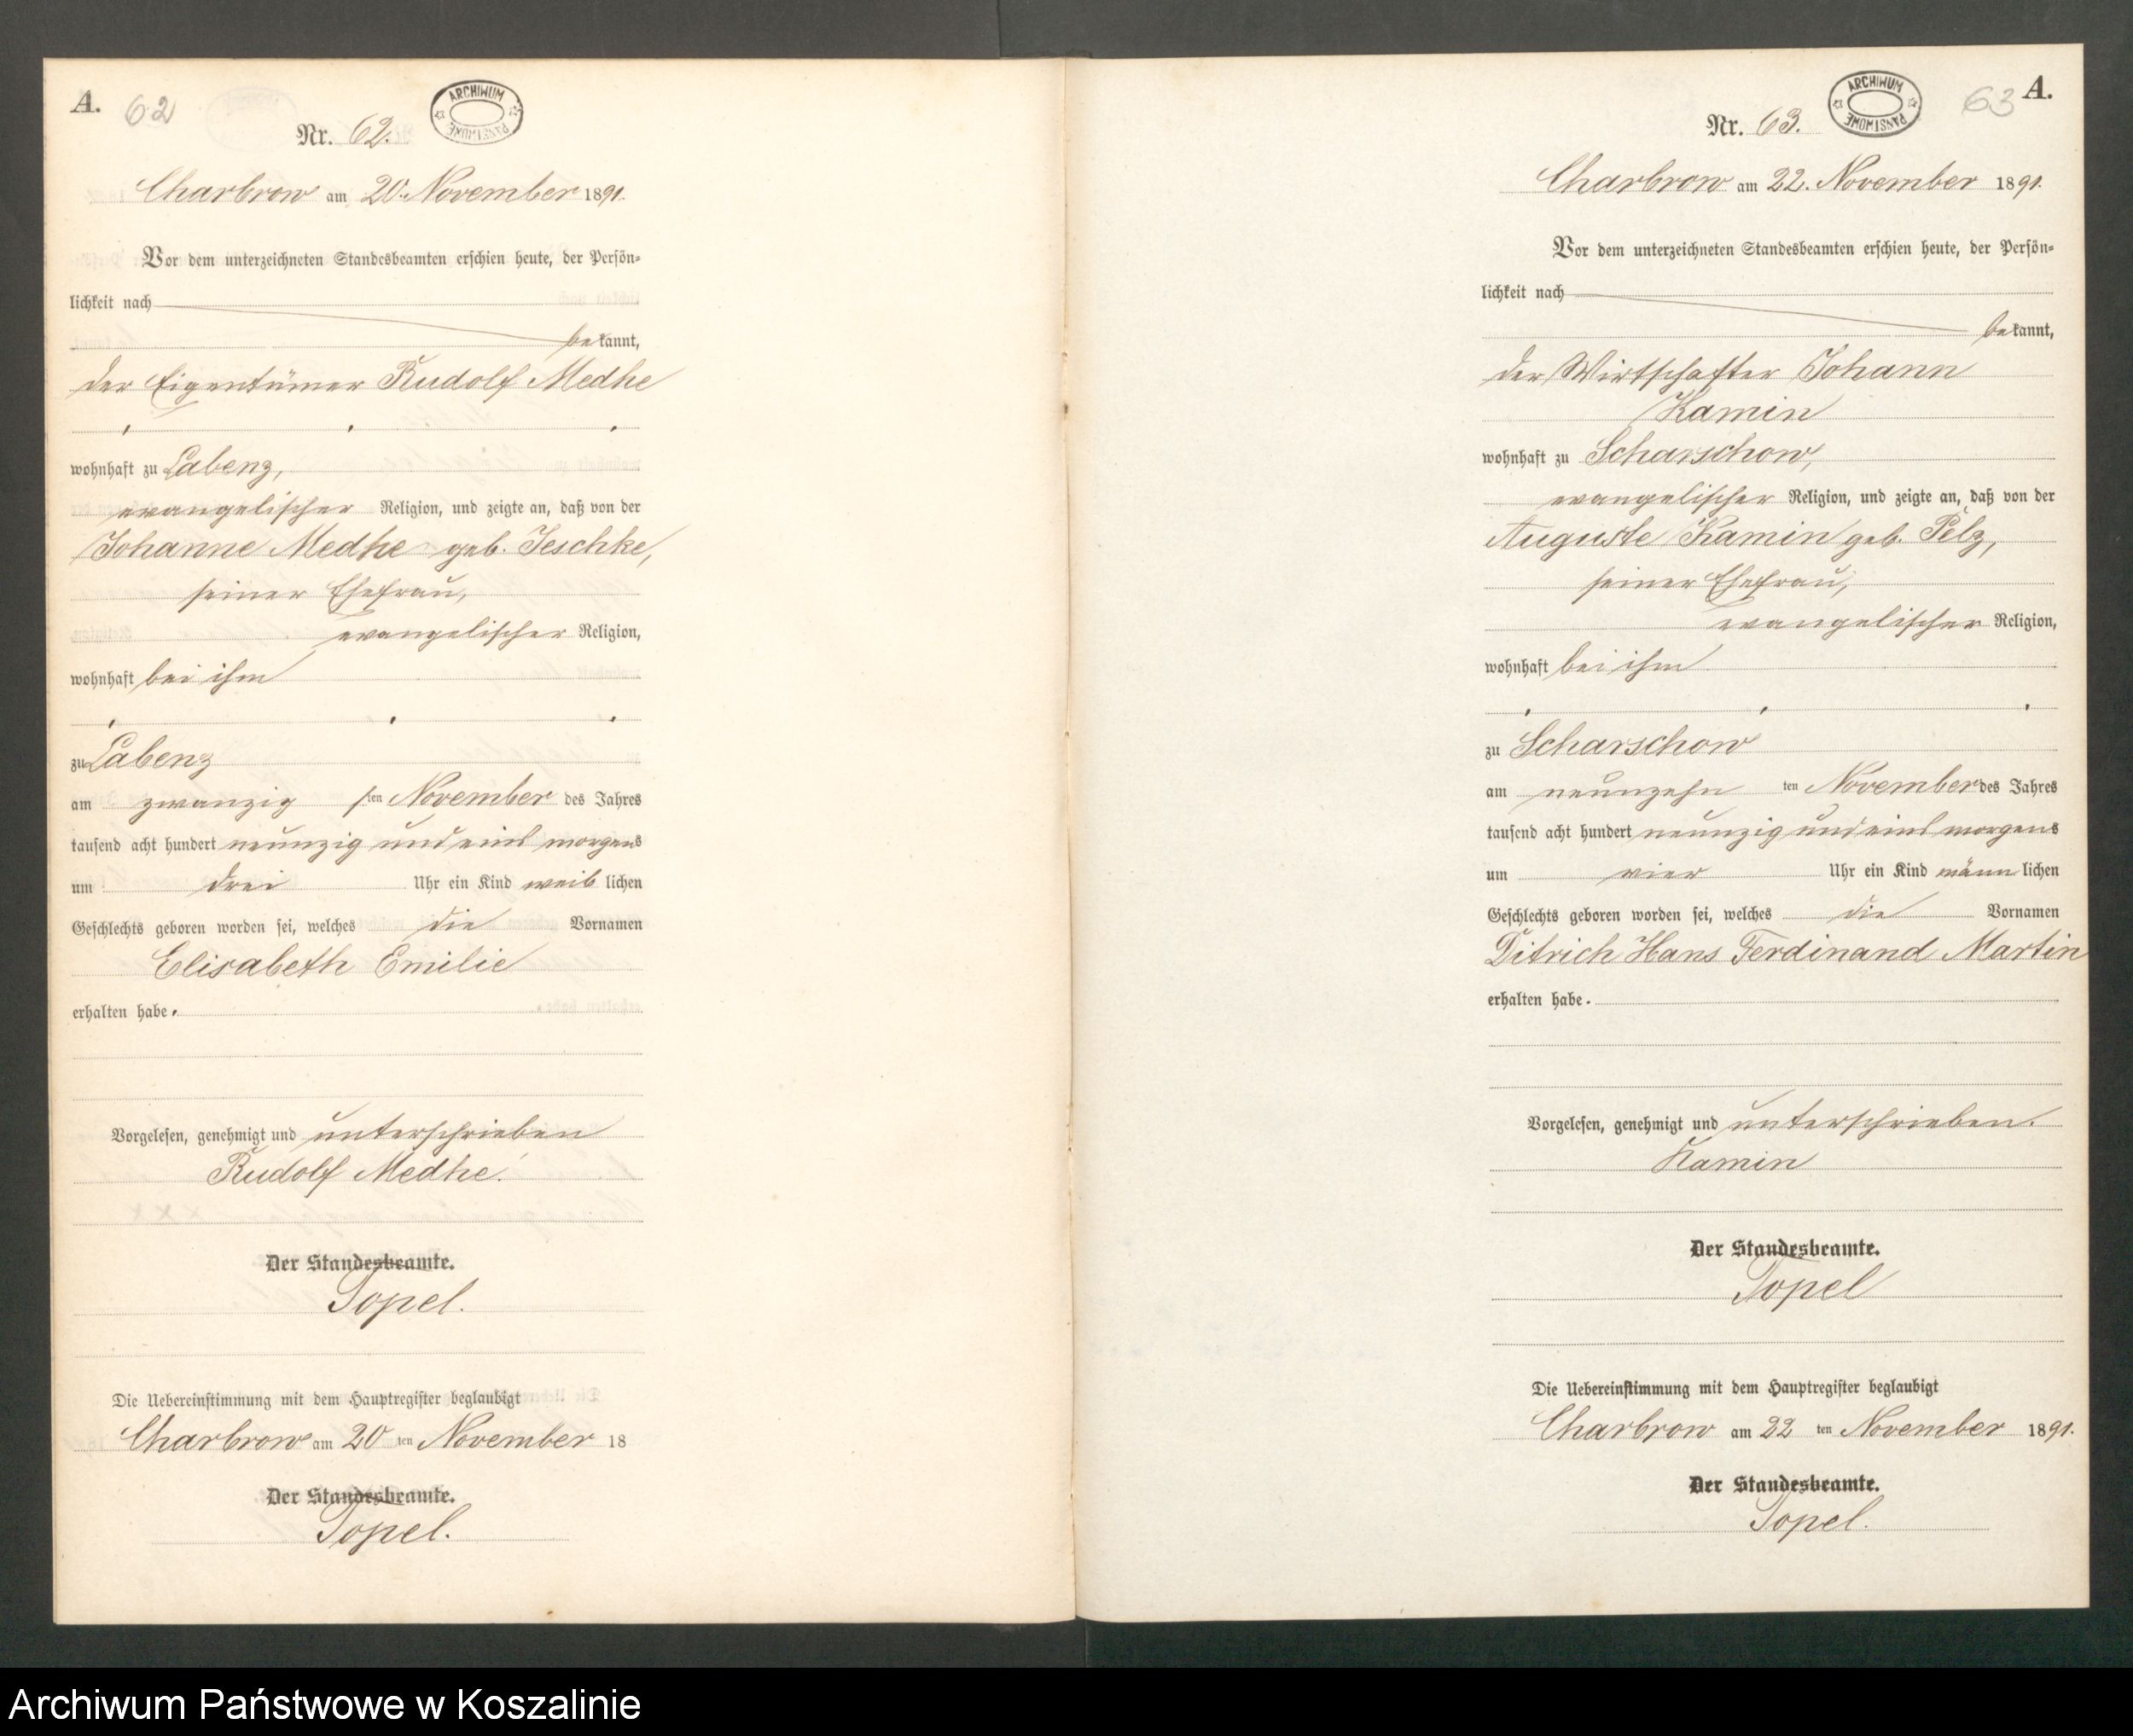 A.
62
Nr. 62.
ARCHIWUM PAŃSTWOWE
Charbrow am 20. November 1891.
Vor dem unterzeichneten Standesbeamten erschien heute, der Persön-
lichkeit nach
bekannt,
der Eigentümer Rudolf Medhe
wohnhaft zu Labenz,
evangelischer Religion, und zeigte an, daß von der
Johanne Medhe geb. Jeschke,
seiner Ehefrau,
evangelischer Religion,
wohnhaft bei ihm
zu Labenz
am zwanzig sten November des Jahres
tausend acht hundert neunzig und eins morgens
um drei Uhr ein Kind weiblichen
Geschlechts geboren worden sei, welches die Vornamen
Elisabeth Emilie
erhalten habe.
Vorgelesen, genehmigt und unterschrieben
Rudolf Medhe.
Der Standesbeamte.
Topel.
Die Uebereinstimmung mit dem Hauptregister beglaubigt
Charbrow am 20 ten November 18
Der Standesbeamte.
Topel.
63 A.
Nr. 63.
ARCHIWUM PAŃSTWOWE
Charbrow am 22. November 1891.
Vor dem unterzeichneten Standesbeamten erschien heute, der Persön-
lichkeit nach
bekannt,
der Wirtschafter Johann
Kamin
wohnhaft zu Scharschow,
evangelischer Religion, und zeigte an, daß von der
Auguste Kamin geb. Pelz,
seiner Ehefrau,
evangelischer Religion,
wohnhaft bei ihm
zu Scharschow
am neunzehn ten November des Jahres
tausend acht hundert neunzig und eins morgens
um vier Uhr ein Kind männlichen
Geschlechts geboren worden sei, welches die Vornamen
Ditrich Hans Ferdinand Martin
erhalten habe.
Vorgelesen, genehmigt und unterschrieben.
Kamin
Der Standesbeamte.
Topel
Die Uebereinstimmung mit dem Hauptregister beglaubigt
Charbrow am 22 ten November 1891.
Der Standesbeamte.
Topel.
Archiwum Państwowe w Koszalinie